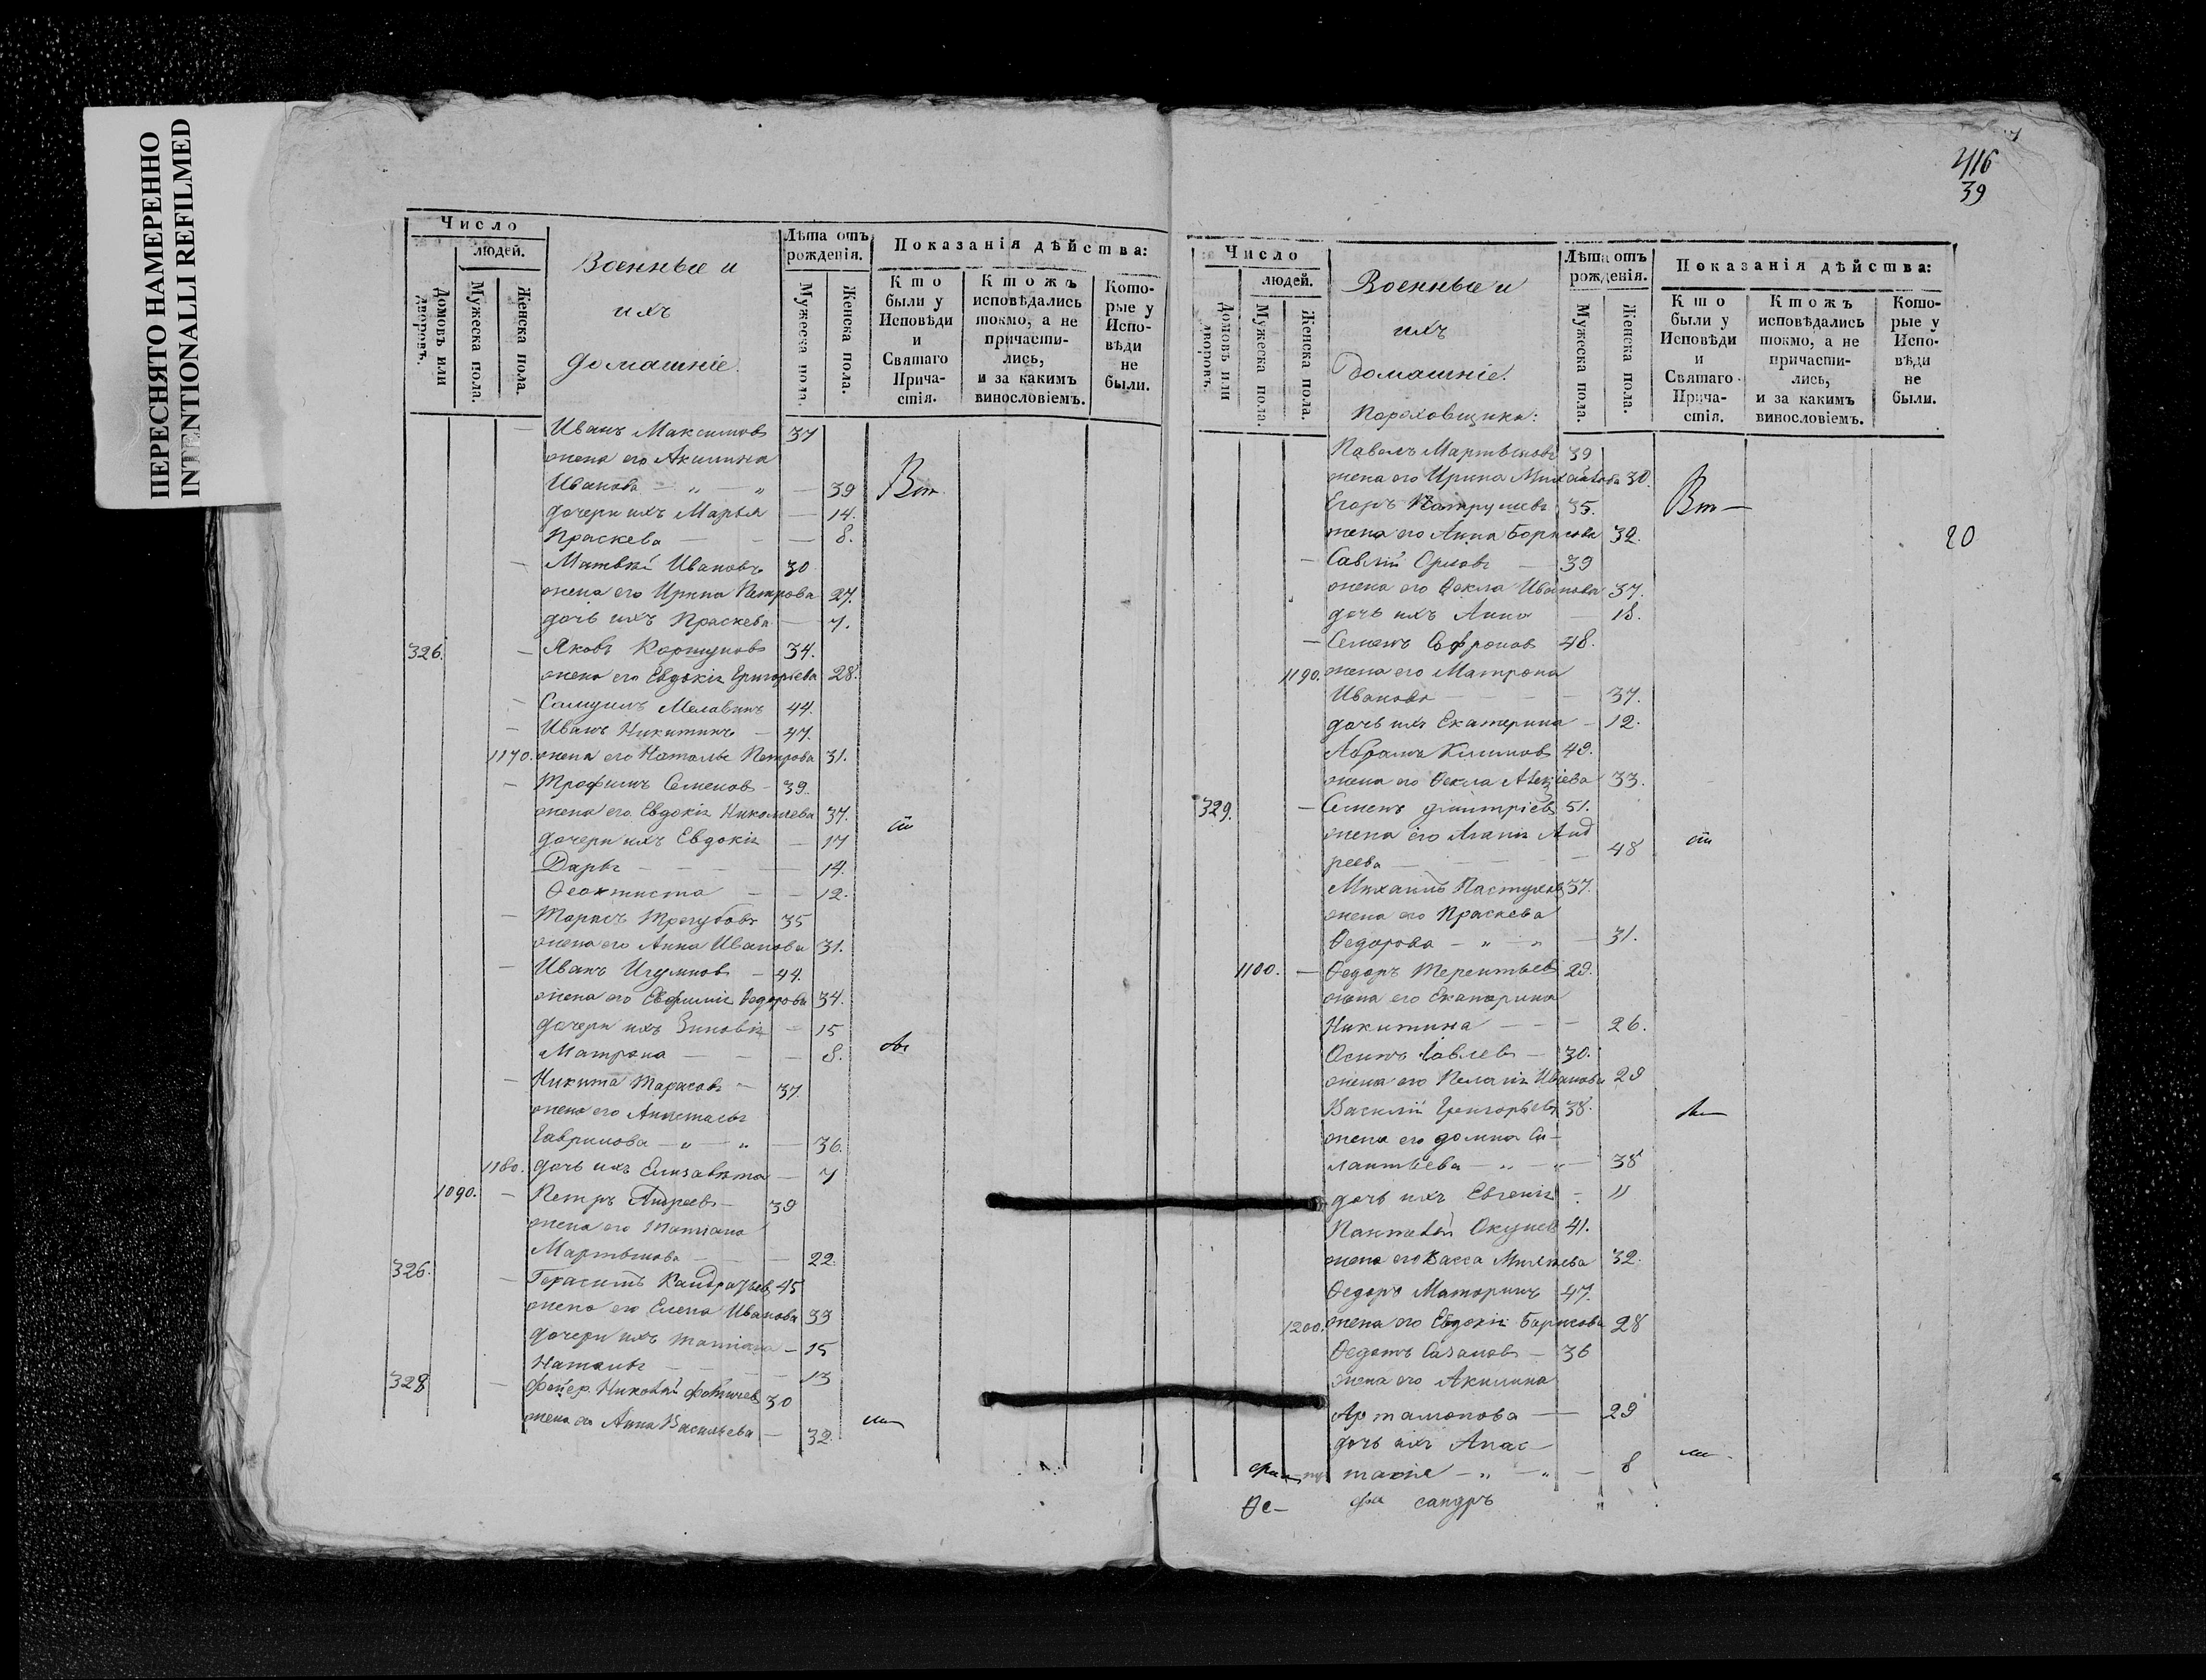 ПЕРЕСНЯТО НАМЕРЕННО
INTENTIONALLI REFILMED
Число
людей.
Домовъ или дворовъ.
Мужеска пола.
Женска пола.
Военные и
ихъ
домашніе.
Лѣта отъ рожденія.
Мужеска пола.
Женска пола.
Показанія дѣйства:
Кто были у Исповѣди и Святаго Прича-стія.
Ктожъ исповѣдались токмо, а не причасти-лись, и за какимъ винословіемъ.
Кото-рые у Испо-вѣди не были.
— Иванъ Максимовъ 37
жена его Акилина
Иванова — „ — „ — 39 Вт
дочери ихъ Марья — 14.
Праскева — — — 8.
— Матвѣй Ивановъ 30
жена его Ирина Петрова 27.
дочь ихъ Праскева — 7.
326. — Яковъ Коршуновъ 34.
жена его Евдокія Григорьева 28.
— 44.
— Иванъ Никитинъ — 47.
1170. жена его Наталья Петрова 31.
— Трофимъ Семенов — 39.
жена его Евдокія Николаева 37.
дочери ихъ Евдокія — 17
Дарья — — — — 14.
Феоктиста — — 12.
— Трегубовъ 35
жена его Анна Иванова 31.
— Иванъ Игумнов — 44.
жена его Евфимія Федорова 34.
дочери ихъ Зиновія — 15
Матрона — — — 8.
— Никита Тарасовъ — 37.
жена его Анастасья
Гаврилова — „ — „ — 36.
1180. дочь ихъ Елизавета — 7
1090. — Петръ Андреевъ — 39
жена его Татіана
Мартынова — — 22.
326. — Герасимъ Кандратьев 45
жена его Елена Иванова 33
дочери ихъ Татіана — 15
Наталья — — — 13
328 — Николай 30
жена его Анна Васильева — 32.
416
39
Число
людей.
Домовъ или дворовъ.
Мужеска пола.
Женска пола.
Военные и
ихъ
Домашніе.
Пороховщики:
Лѣта отъ рожденія.
Мужеска пола.
Женска пола.
Показанія дѣйства:
Кто были у Исповѣди и Святаго Прича-стія.
Ктожъ исповѣдались токмо, а не причасти-лись, и за какимъ винословіемъ.
Кото-рые у Испо-вѣди не были.
Павелъ Мартыновъ 39
жена его Ирина Михайлова 30.
Егоръ Патрушевъ 35. Вт —
жена его Анна Борисова 32.
20
— Савлій Орловъ — 39
жена его Фекла Иванова 37.
дочь ихъ Анна — 18.
— Семенъ Софронов 48.
1190. жена его Матрона
Иванова — — — — 37.
дочь ихъ Екатерина — 12.
Абрамъ Климов 49.
жена его Фекла 33.
329. — Семенъ Дмитріевъ 51.
жена его Агапія Анд
реева — — — — 48
Михаилъ Пастухов 37.
жена его Праскева
Федорова — „ — „ — 31.
1100. — Федоръ Терентьев 29.
жена его Екатерина
Никитина — — — 26.
Осипъ Іавлев — 30.
жена его Пелагія Иванова 29
Василій Григорьевъ 38.
жена его Домна Си-
лантьева — „ — „ — 38
дочь ихъ Евгенія — 11
Пантелей Окуневъ 41.
жена его Васса 32.
Федоръ Маторинъ 47.
1200. жена его Евдокія Борисова 28
Федотъ Сазанов — 36
жена его Акилина
Артамонова — — 29
дочь ихъ Анас
тасія — „ — „ — 8
Ѳе — сандръ